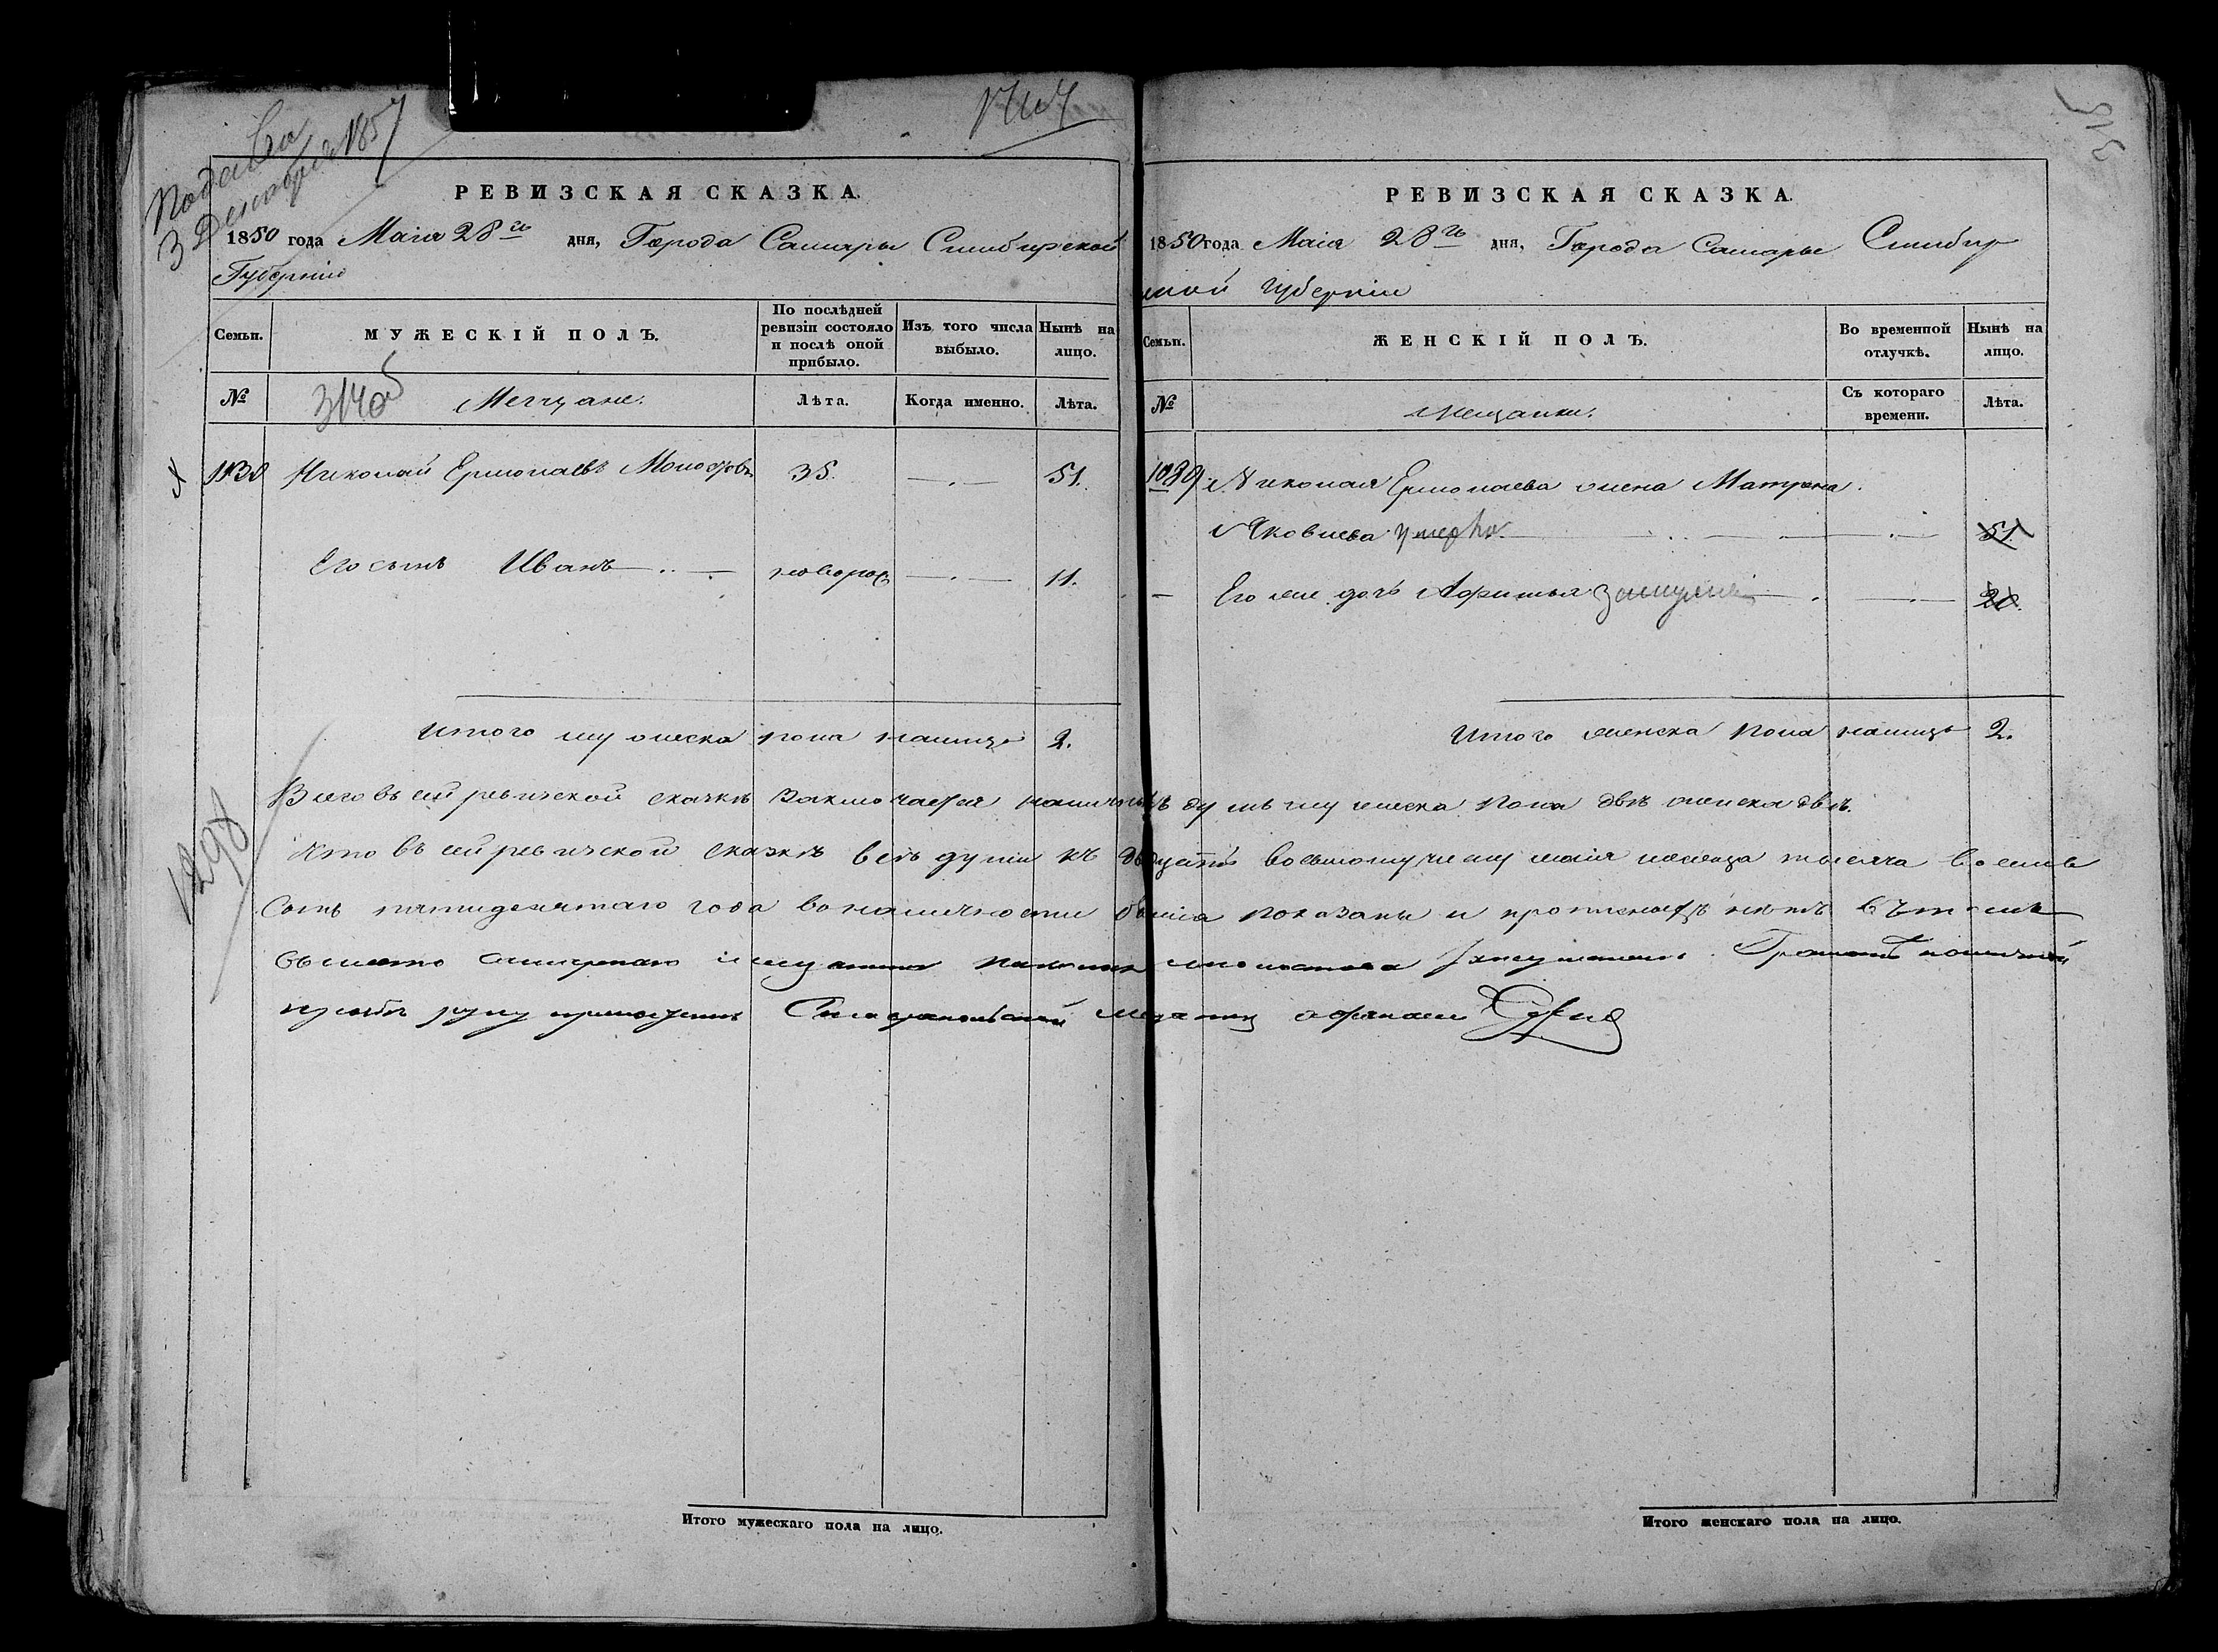 Подана
3 Декабря 1857
РЕВИЗСКАЯ СКАЗКА.
1850 года Маiя 28го дня, Города Самары Симбирской
Губернiи
Семьи.
МУЖЕСКIЙ ПОЛЪ.
По послѣдней ревизiи состояло и послѣ оной прибыло.
Изъ того числа выбыло.
Нынѣ на лицо.
№
Мещане.
Лѣта.
Когда именно.
Лѣта.
Николай Ермолаевъ 35. 51.
Его сынъ Иванъ новорож 11.
Итого мужеска пола налицо 2.
1298
Итого мужескаго пола на лицо.
315
РЕВИЗСКАЯ СКАЗКА.
1850 года Маiя 28го дня, Города Самары Симбир
ской губернiи
Семьи.
ЖЕНСКIЙ ПОЛЪ.
Во временной отлучкѣ.
Нынѣ на лицо.
№
мещанки.
Съ котораго времени.
Лѣта.
1039 Николая Ермолаева жена Матрена
Яковлева умерла 51
Его же дочь Афимья замужемъ 20.
Итого женска пола налицо 2.
Всего въ сей ревизской сказкѣ заключается наличныхъ душъ мужеска пола двѣ женска двѣ.
Что въ сей ревизской сказкѣ всѣ души къ двадцать восьмому числу маiя месяца тысяча восемь
сотъ пятидесятаго года воналичности показаны и прописныхъ нѣтъ въ томъ
вместо мещанина Николая
прозбѣ руку приложилъ мещанинъ
Итого женскаго пола на лицо.